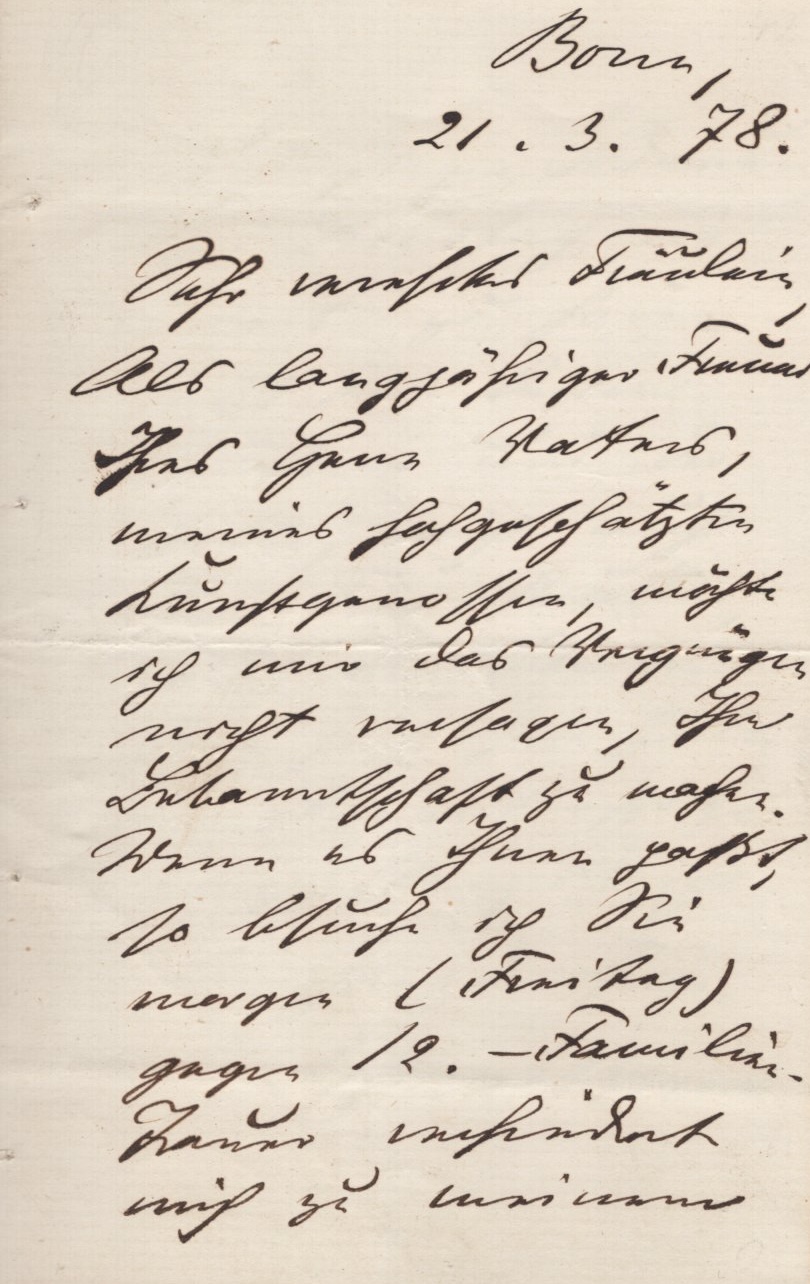 Bonn,
21. 3. 78.
Sehr verehrtes Fräulein,
Als langjähriger Freund
Ihres Herrn Vaters,
meines hochgeschätzten
Kunstgenossen, möchte
ich mir das Vergnügen
nicht versagen, Ihre
Bekanntschaft zu machen.
Wenn es Ihnen paßt,
so besuche ich Sie
morgen (Freitag)
gegen 12. – Familien-
Trauer verhindert
mich zu meinem